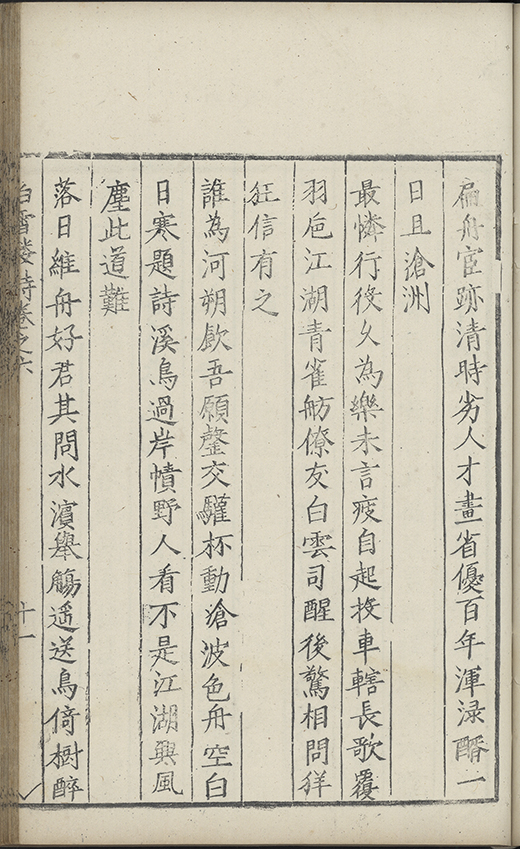 扁舟宦跡清時劣人才畫省優百年渾淥酳一
日且滄洲
最憐行役久為樂未言疲自起投車轄長歌覆
羽巵江湖青雀舫僚友白雲司醒後驚相問徉
狂信有之
誰為河朔飲吾願罄交驩杯動滄波色舟空白
日寒題詩溪鳥過岸幘野人看不是江湖興風
塵此道難
落日維舟好君其問水濵舉觴遥送鳥倚樹醉
白雪樓詩卷之六
十一